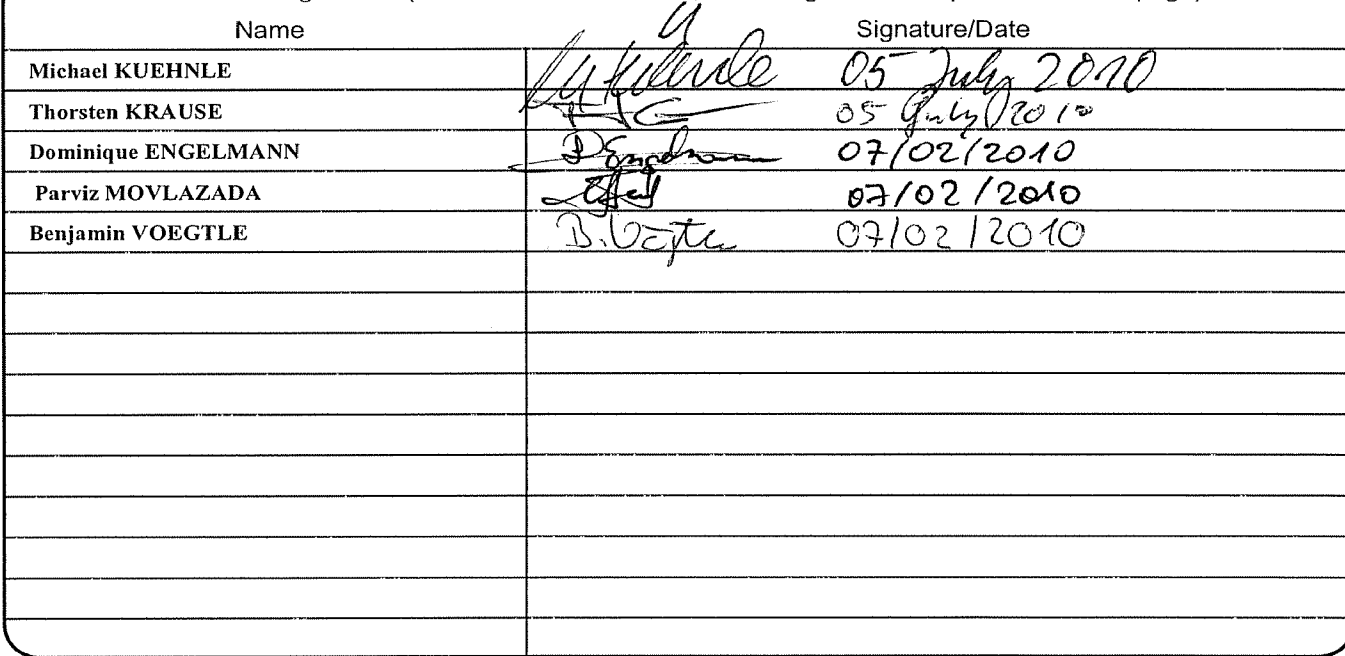 Name Signature/Date
Michael KUEHNLE 05 July 2010
Thorsten KRAUSE 05 July 2010
Dominique ENGELMANN D Engelmann 07/02/2010
Parviz MOVLAZADA 07/02/2010
Benjamin VOEGTLE B. Vögtle 07/02/2010